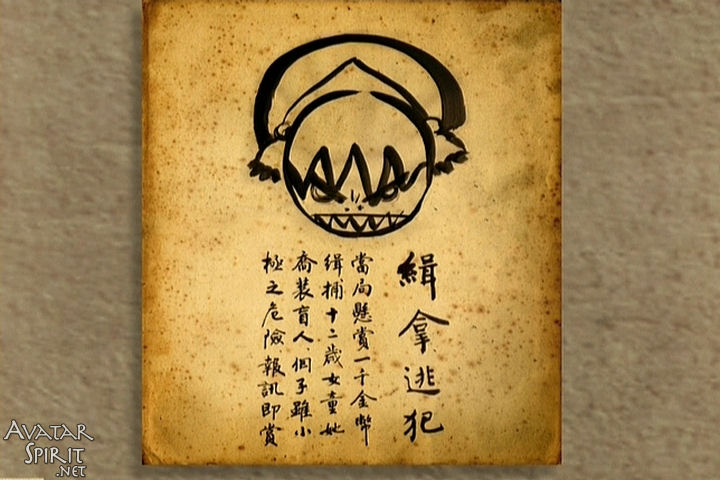 緝拿逃犯
當局懸賞一千金幣
緝捕十二歲女童她
喬裝盲人.個子雖小
極之危險報訊即賞
AVATAR
SPIRIT
.NET